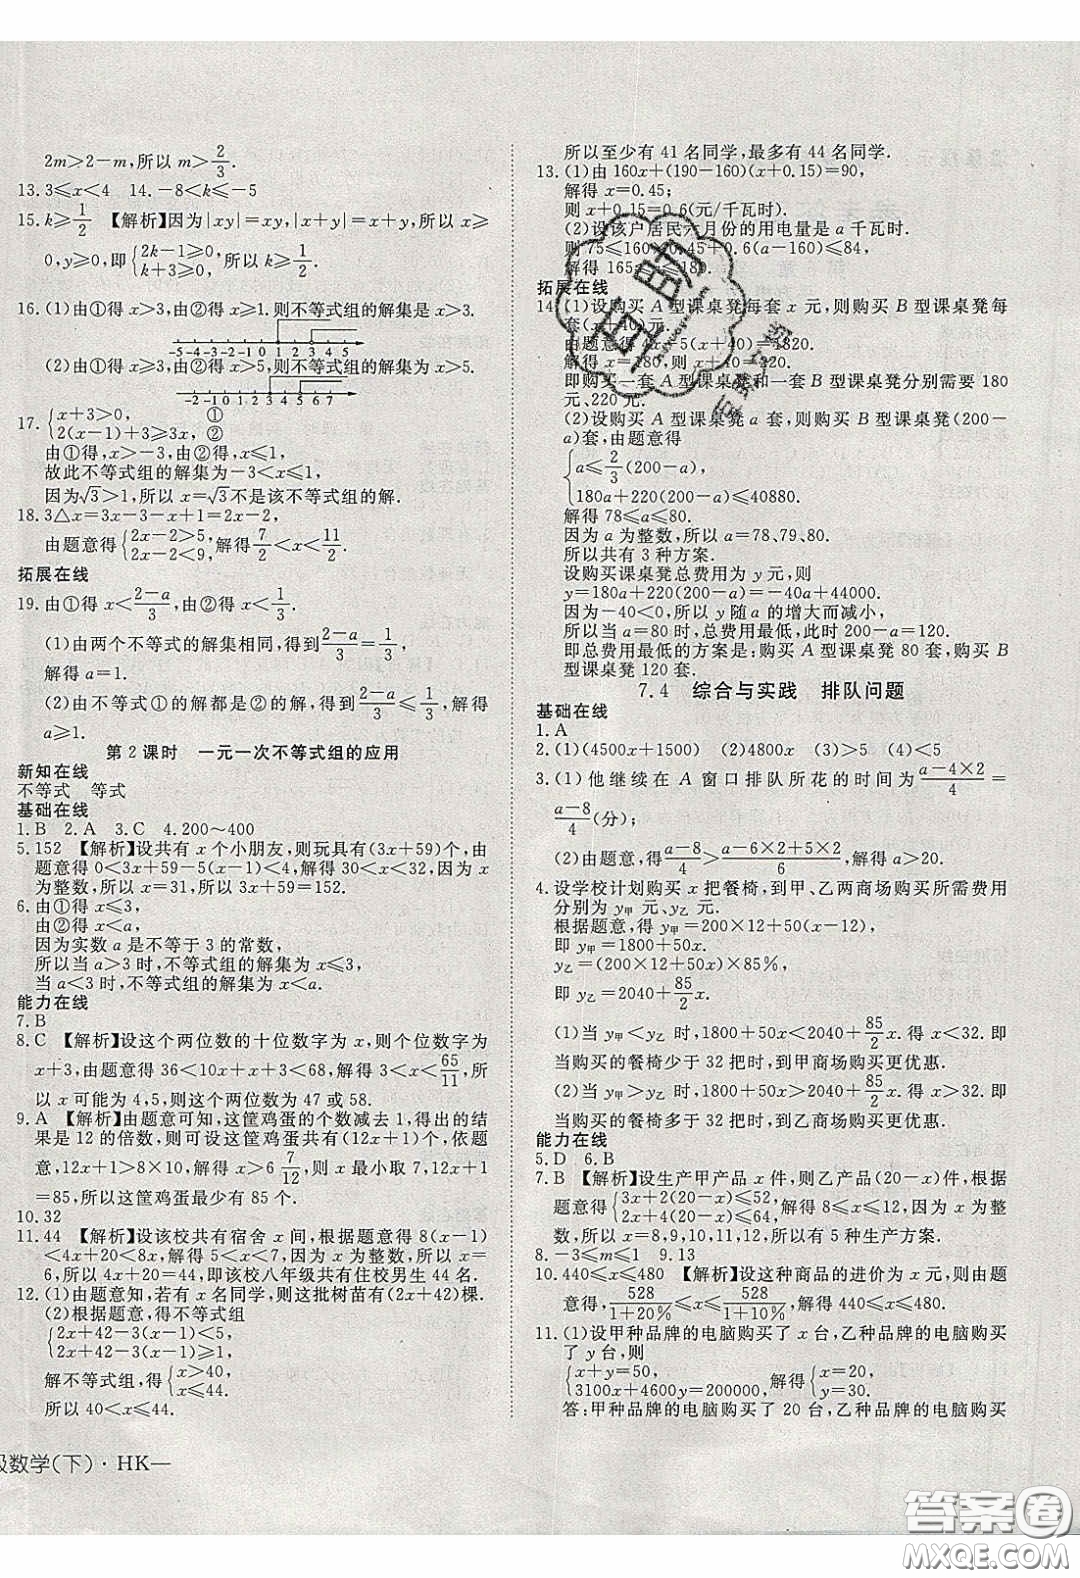 2m>2-m,所以 m>2/3.
13. 3≤x<4  14. -8<k≤-5
15. k≥1/2 【解析】因为|xy|=xy,|x+y|=x+y,所以 x≥
0,y≥0,即{2k-1≥0, k+3≥0, 所以 k≥1/2.
16. (1)由①得 x>3,由②得 x>1,则不等式组的解集为 x>3.
-5 -4 -3 -2 -1 0 1 2 3 4 5
(2)由①得 x>3,由②得 x>5,则不等式组的解集为 x>5.
-3 -2 -1 0 1 2 3 4 5 6 7
17. {x+3>0, ① 2(x-1)+3≥3x, ②
由①得,x>-3,由②得,x≤1.
故此不等式组的解集为-3<x≤1,
因为√3>1,所以 x=√3不是该不等式组的解.
18. 3△x=3x-3-x+1=2x-2,
由题意得{2x-2>5, 2x-2<9, 解得7/2<x<11/2.
拓展在线
19. 由①得 x<(2-a)/3,由②得 x<1/3.
(1)由两个不等式的解集相同,得到(2-a)/3=1/3,
解得 a=1.
(2)由不等式①的解都是②的解,得到(2-a)/3≤1/3,解得
a≥1.
第 2 课时  一元一次不等式组的应用
新知在线
不等式  等式
基础在线
1. B  2. A  3. C  4. 200～400
5. 152 【解析】设共有 x 个小朋友,则玩具有(3x+59)个,由
题意得 0<3x+59-5(x-1)<4,解得 30<x<32,因为 x
为整数,所以 x=31,所以 3x+59=152.
6. 由①得 x≤3,
由②得 x<a,
因为实数 a 是不等于 3 的常数,
所以当 a>3 时,不等式组的解集为 x≤3,
当 a<3 时,不等式组的解集为 x<a.
能力在线
7. B
8. C 【解析】设这个两位数的十位数字为 x,则个位数字为
x+3,由题意得 36<10x+x+3<68,解得 3<x<65/11,所
以 x 可能为 4,5,则这个两位数为 47 或 58.
9. A 【解析】由题意可知,这筐鸡蛋的个数减去 1,得出的结
果是 12 的倍数,则可设这筐鸡蛋共有(12x+1)个,依题
意,12x+1>8×10,解得 x>6 7/12,则 x 最小取 7,12x+1
=85,所以这筐鸡蛋最少有 85 个.
10. 32
11. 44 【解析】设该校共有宿舍 x 间,根据题意得 8(x-1)
<4x+20<8x,解得 5<x<7,因为 x 为整数,所以 x=
6,所以 4x+20=44,即该校八年级共有住校男生 44 名.
12. (1)由题意知,若有 x 名同学,则这批树苗有(2x+42)棵.
(2)根据题意,得不等式组
{2x+42-3(x-1)<5, 2x+42-3(x-1)≥1,
解不等式组,得{x>40, x≤44.
所以 40<x≤44.
级数学(下)·HK—
所以至少有 41 名同学,最多有 44 名同学.
13. (1)由 160x+(190-160)(x+0.15)=90,
解得 x=0.45;
则 x+0.15=0.6(元/千瓦时).
(2)设该户居民六月份的用电量是 a 千瓦时.
则 75≤160×0.45+0.6(a-160)≤84,
解得 165≤a≤180.
拓展在线
14. (1)设购买 A 型课桌凳每套 x 元,则购买 B 型课桌凳每
套(x+40)元.
由题意得 4x+5(x+40)=1820.
解得 x=180,则 x+40=220.
即购买一套 A 型课桌凳和一套 B 型课桌凳分别需要 180
元、220 元.
(2)设购买 A 型课桌凳 a 套,则购买 B 型课桌凳(200-
a)套,由题意得
{a≤2/3(200-a), 180a+220(200-a)≤40880.
解得 78≤a≤80.
因为 a 为整数,所以 a=78、79、80.
所以共有 3 种方案.
设购买课桌凳总费用为 y 元,则
y=180a+220(200-a)=-40a+44000.
因为-40<0,所以 y 随 a 的增大而减小,
所以当 a=80 时,总费用最低,此时 200-a=120.
即总费用最低的方案是:购买 A 型课桌凳 80 套,购买 B
型课桌凳 120 套.
7.4  综合与实践  排队问题
基础在线
1. A
2. (1)(4500x+1500)  (2)4800x  (3)>5  (4)<5
3. (1)他继续在 A 窗口排队所花的时间为(a-4×2)/4=
(a-8)/4(分);
(2)由题意,得(a-8)/4>(a-6×2+5×2)/6,解得 a>20.
4. 设学校计划购买 x 把餐椅,到甲、乙两商场购买所需费用
分别为 y甲 元、y乙 元.
根据题意,得 y甲=200×12+50(x-12),
即 y甲=1800+50x.
y乙=(200×12+50x)×85%,
即 y乙=2040+85/2x.
(1)当 y甲<y乙 时,1800+50x<2040+85/2x. 得 x<32. 即
当购买的餐椅少于 32 把时,到甲商场购买更优惠.
(2)当 y甲>y乙 时,1800+50x>2040+85/2x. 得 x>32. 即
当购买的餐椅多于 32 把时,到乙商场购买更优惠.
能力在线
5. D  6. B
7. B 【解析】设生产甲产品 x 件,则乙产品(20-x)件,根据
题意得{3x+2(20-x)≤52, 2x+4(20-x)≤64, 解得 8≤x≤12,因为 x 为整
数,所以 x=8,9,10,11,12,所以有 5 种生产方案.
8. -3≤m≤1  9. 13
10. 440≤x≤480 【解析】设这种商品的进价为 x 元,则由题
意得,528/(1+20%)≤x≤528/(1+10%),解得 440≤x≤480.
11. (1)设甲种品牌的电脑购买了 x 台,乙种品牌的电脑购买
了 y 台,则
{x+y=50, 3100x+4600y=200000, 解得{x=20, y=30.
答:甲种品牌的电脑购买了 20 台,乙种品牌的电脑购买
答案圈
MXQE.COM